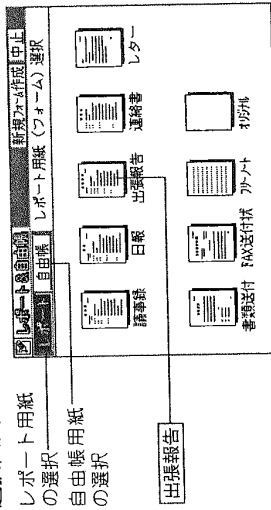 レポート用紙
の選択
自由帳用紙
の選択
出張報告
レポート&自由帳
新規フォーム作成
中止
自由帳
レポート用紙(フォーム)選択
議事録
日報
出張報告
連絡書
レター
書類送付
FAX送付状
フリーノート
オリジナル